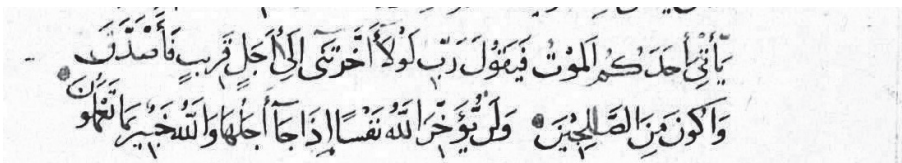 يَّأْتِيَ أَحَدَكُمُ الْمَوْتُ فَيَقُولَ رَبِّ لَوْلَآ أَخَّرْتَنِىٓ إِلَىٰٓ أَجَلٍ قَرِيبٍ فَأَصَّدَّقَ
وَأَكُونَ مِنَ الصَّٰلِحِينَ وَلَنْ يُّؤَخِّرَ اللَّهُ نَفْسًا إِذَا جَآ أَجَلُهَا وَاللَّهُ خَبِيرٌ بِمَا تَعْمَلُونَ